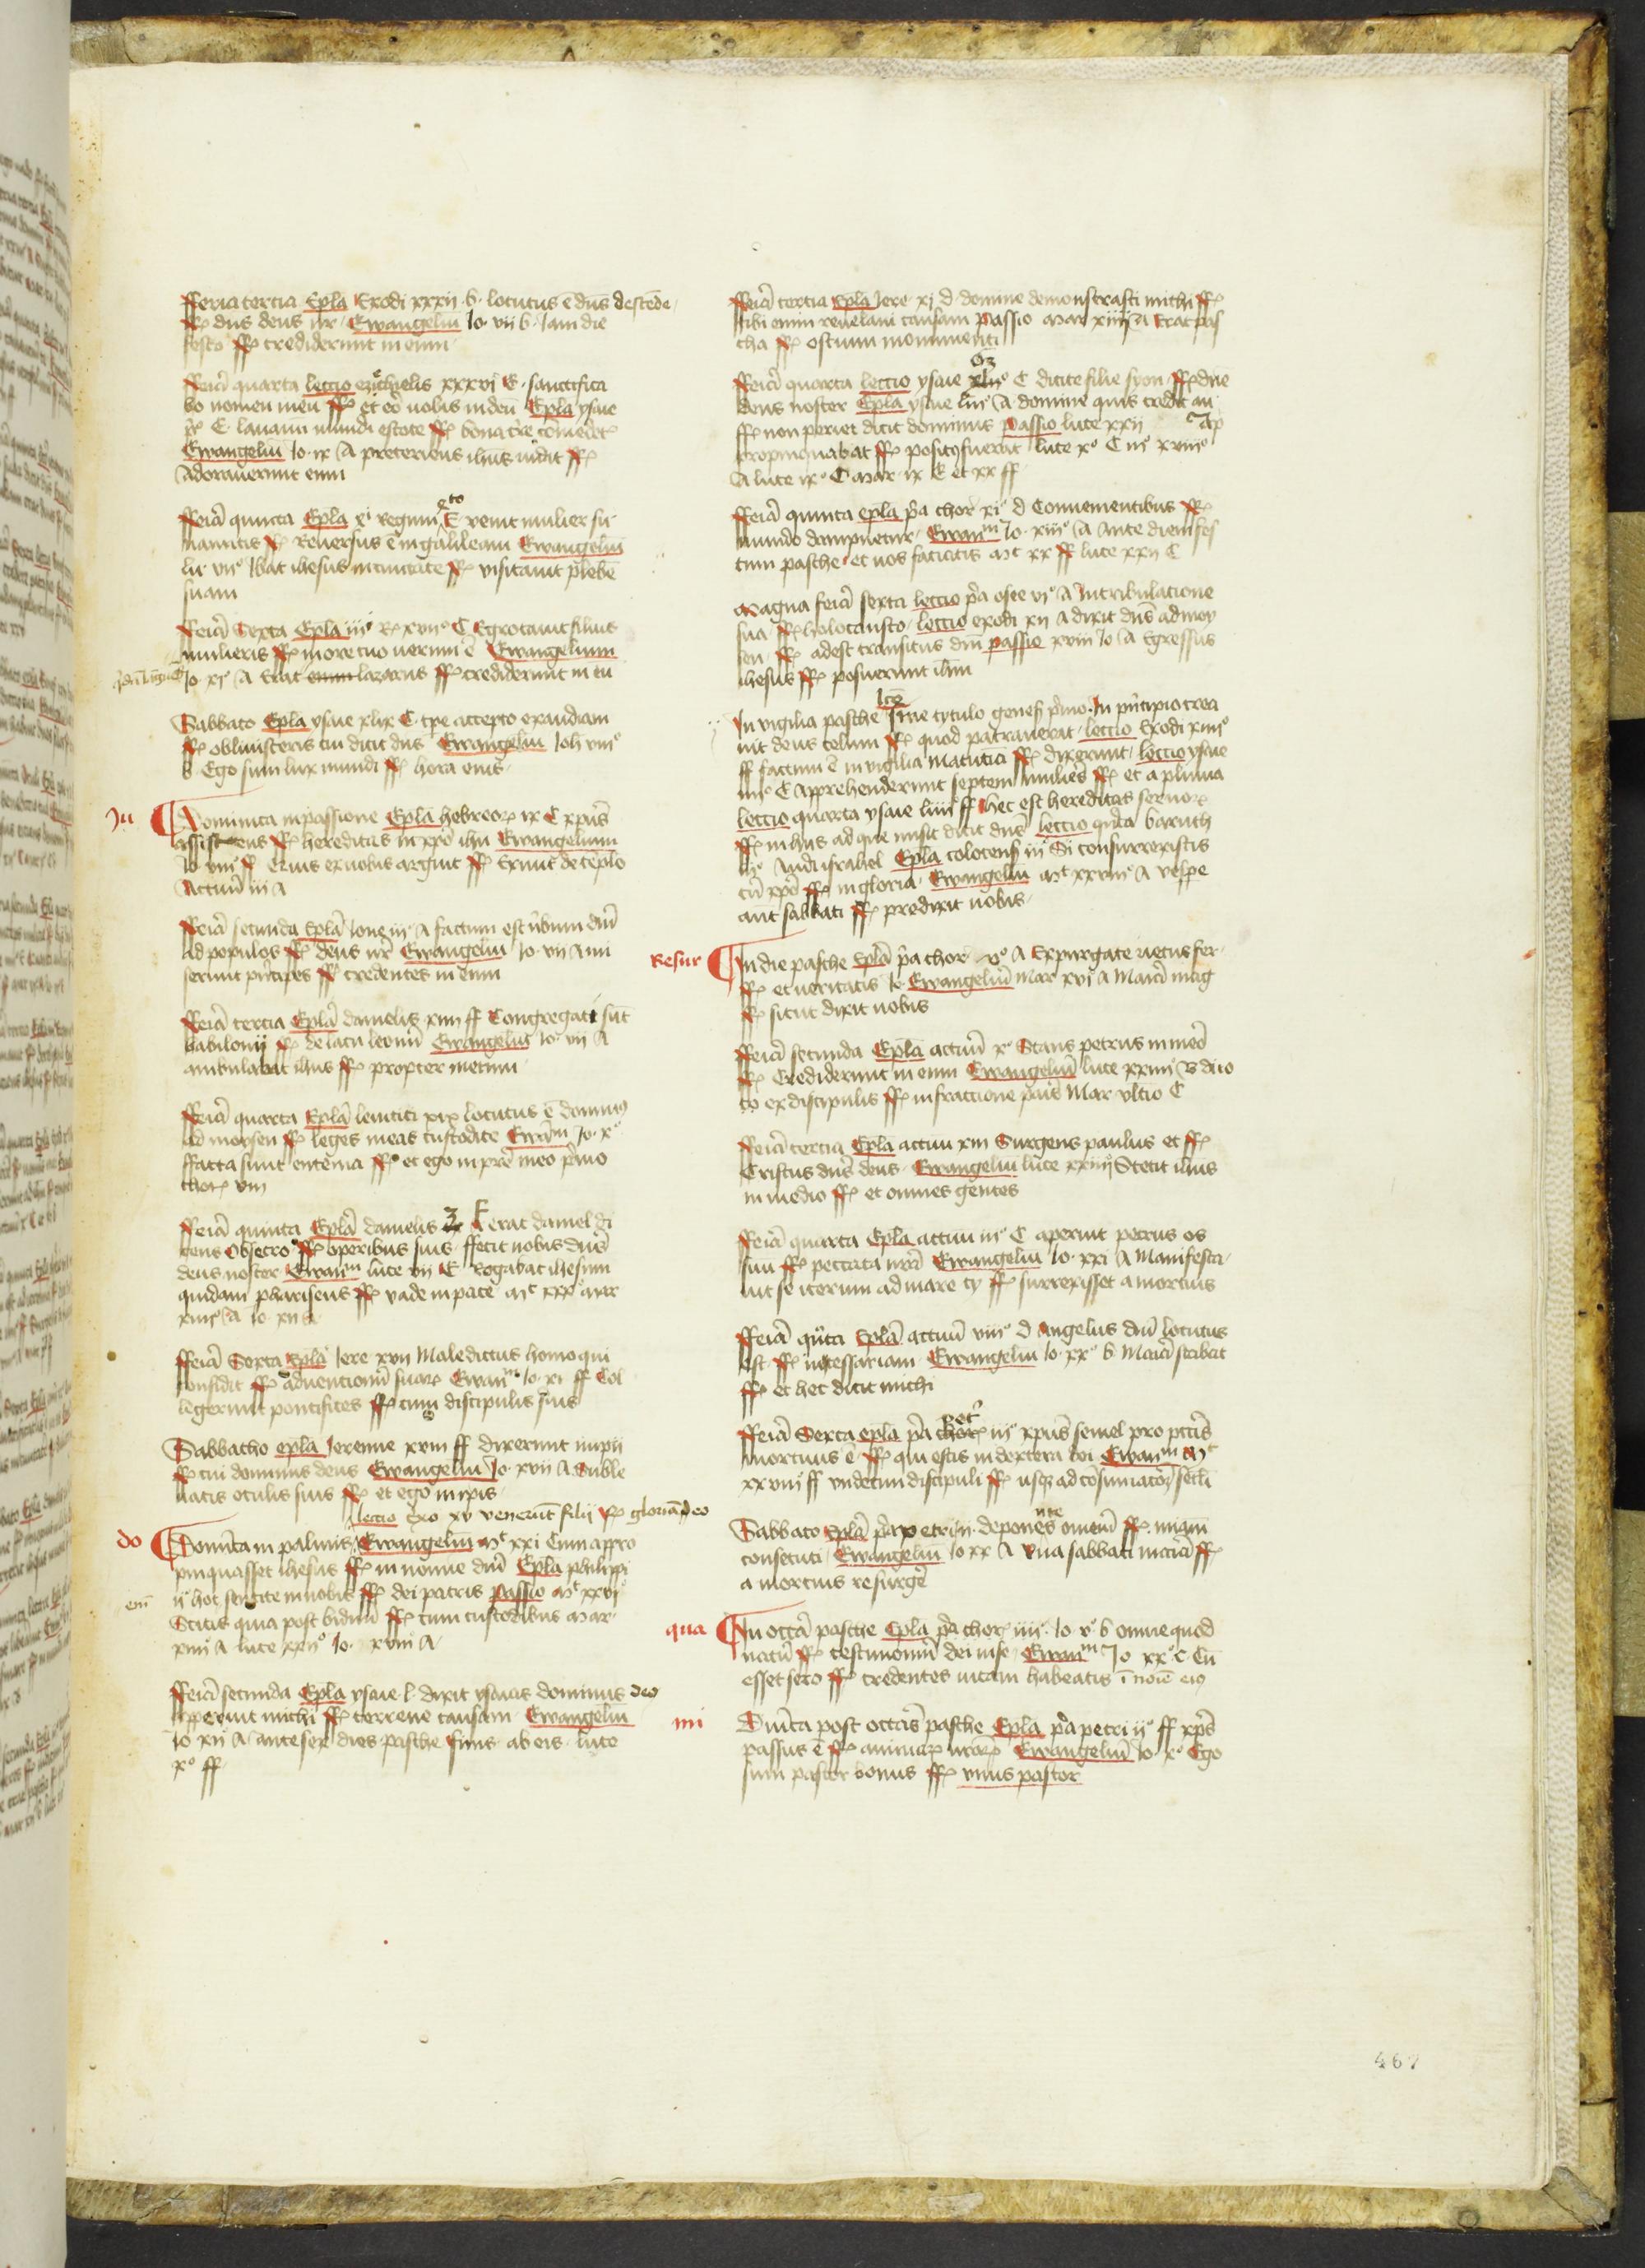 fferia tercia Epla Exodi xxxii · b · locutus ē dn̄s descēde
ff dn̄s deus nr̄ Ewangeliū Io · vii b · Iam die
festo ff crediderunt in eum
ffeiā quarta lectio ezechyelis xxxvi E · sanctifica
bo nomen meū ff et eo uobis in deū Epla ysaie
E · lauamī mundi estote ff bona terre comedet
Ewangeliū Io · ix A preteriens ihus uidit ff
Adorauerunt eum
ffeiā quinta Epla regum E venit mulier su
namitis ff Reuersus ē in galileam Ewangeliū
lu · vii Ibat ihesus in ciuitatē ff visitauit plebē
suam
ffeiā Sexta Epla iii R xvii C Egrotauit filius
mulieris ff in ore tuo uerum ē Ewangelium
Io · xi A Erat lazarus ff crediderunt in eū
Sabbato Epla ysaie xlix C tpe accepto exaudiam
ff obliuisceris tui dicit dn̄s Ewangeliū Ioh viii
b · Ego sum lux mundi ff hora eius
Iu Dominica in passione Epla hebreor ix C xpūs
assistens ff hereditatis in xpō ihu Ewangelium
Io viii Quis ex uobis arguit ff Exiuit de tēplo
Actuū iii A
ffeiā secunda Epla Ione iii A factum est ūbum dn̄i
ad populos ff deus nr̄ Ewangeliū Io · vii A mi
serunt pn̄cipes ff credentes in eum
ffeiā tercia Epla danielis xiiii ff Congregati sūt
babilonij ff de lacu leonū Ewangeliū Io · vii A
ambulabat ihus ff propter metum
ffeiā quarta Epla leuitici xix locutus ē dominus
ad moysen ff leges meas custodite Ewām Io · x
ffacta sunt encenia ff et ego in pre meo p̄mo
chor viii
ffeiā quinta Epla danielis 3 F erat daniel di
cens Obsecro ff operibus suis · ffecit nobis dn̄s
deus noster Ewanm luce vii E Rogabat ihesum
quidam phariseus ff vade in pace Mt xxvi mar
xiiii A Io xii A
ffeiā Sexta Epla Iere xvii Maledictus homo qui
confidit ff aduentionū suar Ewanm Io · xi ff Col
legerunt pontifices ff cum discipulis suis
Sabbatho epla Ieremie xviii ff dixerunt impii
ff tui dominus deus Ewangeliū Io · xvii A Suble
uatis oculis suis ff et ego in ipis
lectio exo xv venerūt filij ff gloriā deo
do Domīca in palmis Ewangeliū Mt xxi Cum appro
pinquasset ihesus ff in nomine dn̄i Epla philippi
ii hoc sentite in uobis ff dei patris passio Mt xxvi
Scitis quia post biduū ff cum custodibus Mar
xiiii A luce xxii Io · xviii A
ffeiā secunda Epla ysaie · l · dixit ysaias dominus deus
apperuit michi ff terrene causam Ewangeliū
Io xii A ante sex dies pasche simis ab eis · luce
x ff
ffeiā tercia Epla Iere · xi d · domine demonstrasti michi ff
tibi enim reuelaui causam Passio Mar xiiii A Erat pas
cha ff ostium monumenti
ffeiā quarta lectio ysaie C dicite filie syon ff dn̄e
deus noster Epla ysaie liii A domine quis credit au
ff non periet dicit dominus Passio luce xxii Ap
propinquabat ff positus fuerat luce x C iii xviii
A luce ix C Mar · ix E et xx ff
ffeiā quinta epla p̄a chor xi d Conuenientibus ff
mundo dampnetur · Ewanm Io · xiii A Ante diem fes
tum pasche · et uos faciatis Mt xx ff luce xxii C
Magna feiā sexta lectio p̄a osee vi A In tribulacione
sua ff holocausto · lectio exodi xii A dixit dn̄s ad moy
sen · ff adest transitus dn̄i passio xviii Io A Egressus
ihesus ff posuerunt ihm
In vigilia pasche lcō sine tytulo genesi p̄mo · In p̄ncipio crea
uit deus celum ff quod patrauerat · lectio Exodi xiiii
ff factum ē in vigilia matutiā ff dixerunt · lectio ysaie
iiii C Apprehenderunt septem mulieres ff et a pluuia
lectio quarta ysaie liiii ff hec est hereditas seruor
ff in hiis ad que misit dicit dn̄s lectio quīta baruth
iii Audi israhel Epla colocens iii Si consurrexistis
cū xpō ff in gloria · Ewangeliū Mt xxviii A vespe
aūt sabbati ff predixit uobis
Resur In die pasche Epla p̄a chor v A Expurgate uetus fer
ff et ueritatis Io Ewangeliū Mar xvi A Mariā mag
ff sicut dixit uobis
ffeiā secunda Epla actuū x Stans petrus in med
ff Crediderunt in eum Ewangeliū luce xxiiii b duo
to ex discipulis ff in fractione panis Mar vltio C
ffeiā tercia Epla actuu xiii Surgens paulus et ff
Cristus dn̄s deus Ewangeliū luce xxiiii Stetit ihus
in medio ff et omnes gentes
ffeiā quarta Epla actuu iii C aperuit petrus os
suū ff peccata nrā Ewangeliū Io · xxi A Manifesta
uit se iterum ad mare ty ff surrexisset a mortuis
ffeiā quīta Epla actuū viii d Angelus dn̄i locutus
est ff necessariam · Ewangeliū Io · xx b · Mariā stabat
ff et hec dicit michi
ffeiā Sexta epla p̄a pet iii xpūs semel pro pctīs
mortuus ē ff qui estis in dextera dei Ewanm Mt
xxviii ff vndecim discipuli ff usq ad cōsumatōem seclī
Sabbato Epla p̄a petri ii · deponentes omnē ff miām
consecuti · Ewangeliū Io xx A Vna sabbati mariā ff
a mortuis resurgē
qua In octā pasche Epla p̄a chor iiii · Io v b omne quod
natū ff testimoniū dei in se · Ewanm Io xx C Cū
esset sero ff credentes uitam habeatis ī noīe eius
mi Dnīca post octās pasche Epla p̄a petri ii ff xpūs
passus ē ff animar urār Ewangeliū Io x Ego
sum pastor bonus ff vnus pastor
467